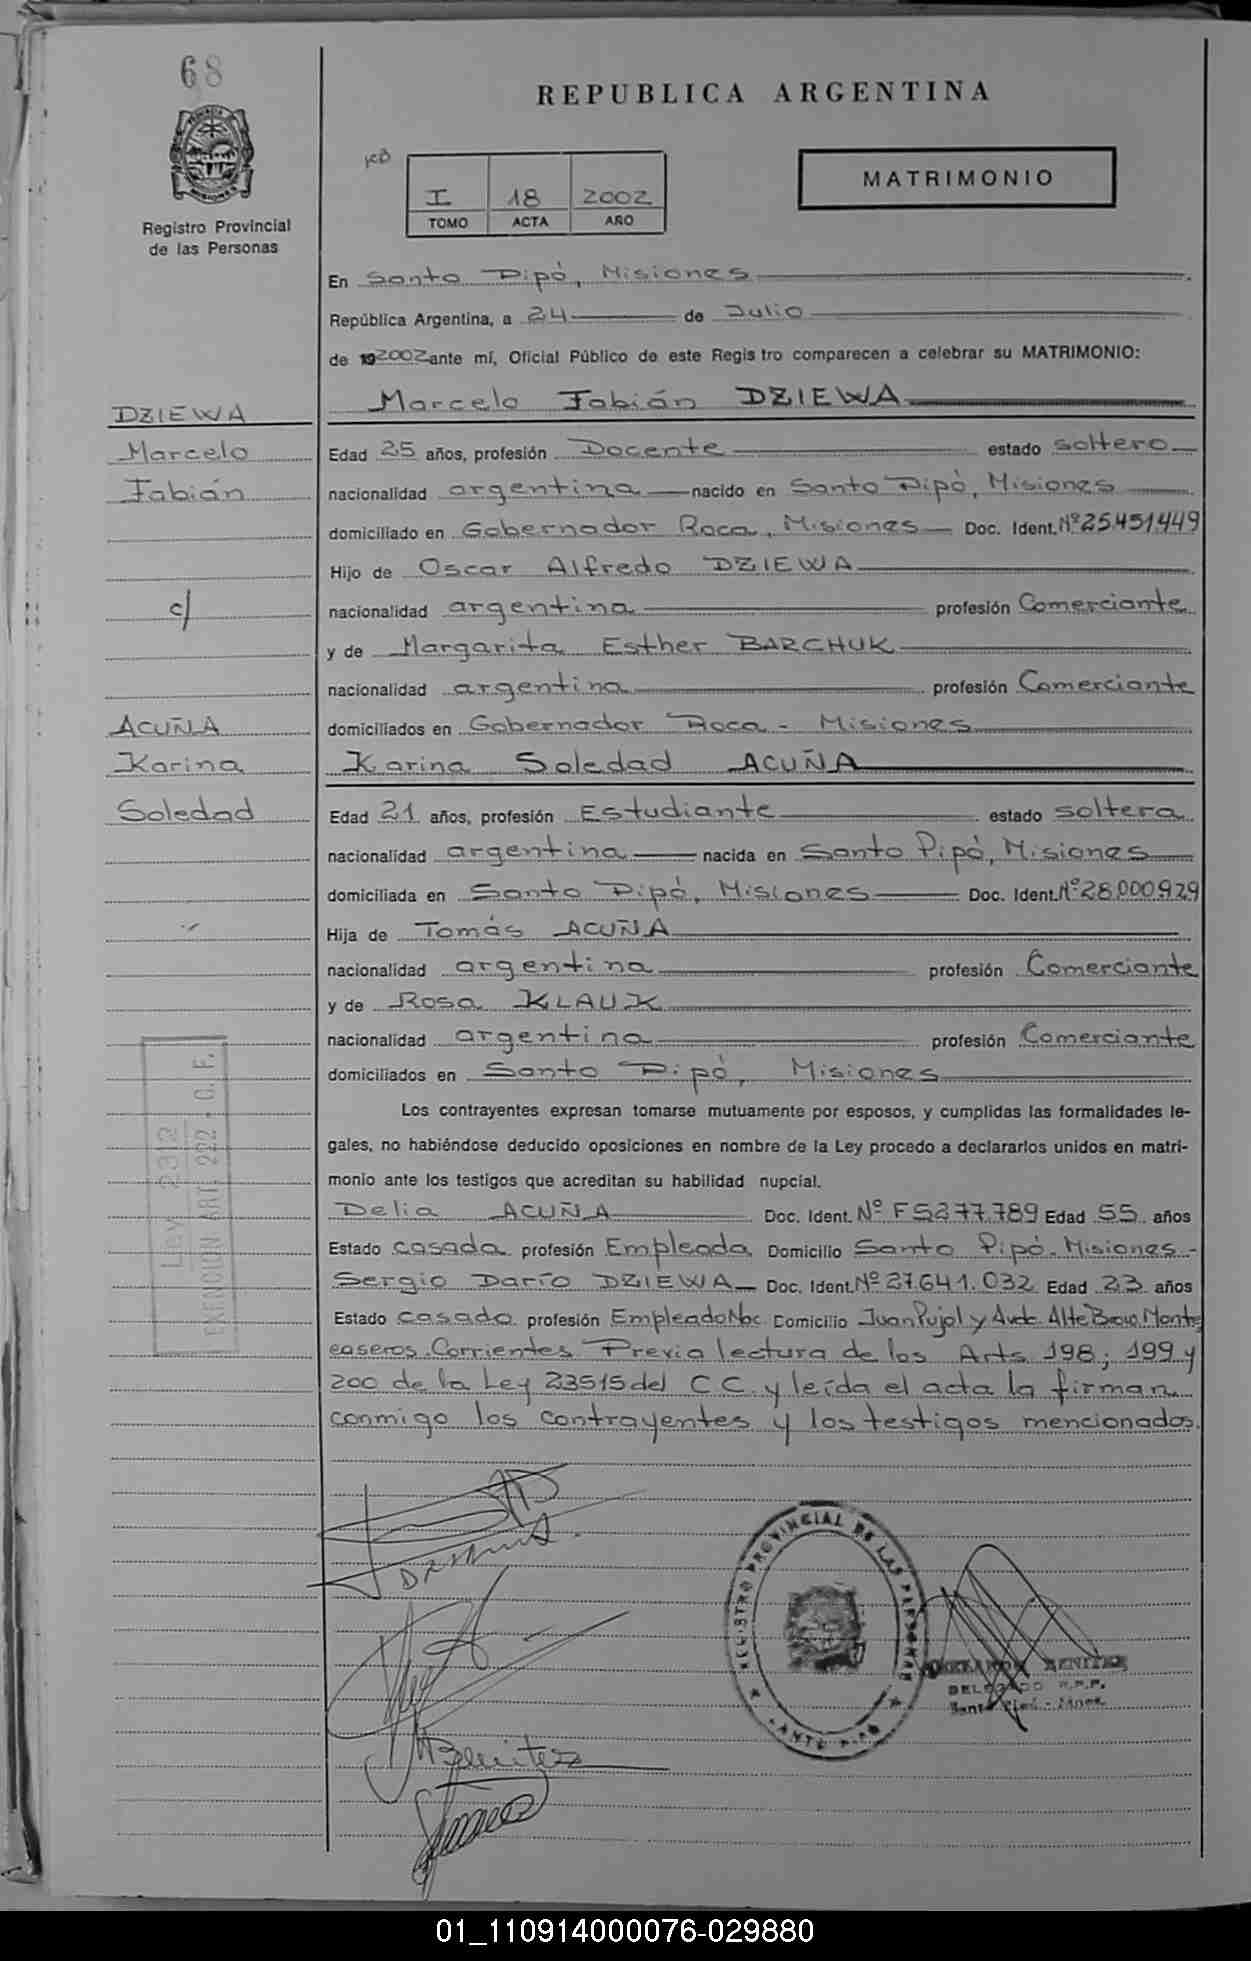 68
REPUBLICA ARGENTINA
MATRIMONIO
I 18 2002
TOMO ACTA AÑO
Registro Provincial
de las Personas
En Santo Pipó, Misiones
República Argentina, a 24 de Julio
de 192002 ante mí, Oficial Público de este Regis tro comparecen a celebrar su MATRIMONIO:
DZIEWA
Marcelo Fabián DZIEWA
Marcelo
Edad 25 años, profesión Docente estado soltero
Fabián
nacionalidad argentina nacido en Santo Pipó, Misiones
domiciliado en Gobernador Roca, Misiones Doc. Ident. Nº25.451.449
Hijo de Oscar Alfredo DZIEWA
c/
nacionalidad argentina profesión Comerciante
y de Margarita Esther BARCHUK
nacionalidad argentina profesión Comerciante
ACUÑA
domiciliados en Gobernador Roca - Misiones
Karina
Karina Soledad ACUÑA
Soledad
Edad 21 años, profesión Estudiante estado soltera
nacionalidad argentina nacida en Santo Pipó, Misiones
domiciliada en Santo Pipó, Misiones Doc. Ident. Nº28.000.929
Hija de Tomás ACUÑA
nacionalidad argentina profesión Comerciante
y de Rosa KLAUK
nacionalidad argentina profesión Comerciante
domiciliados en Santo Pipó, Misiones
Ley 2312
EXENCION ART. 222 - C. F.
Los contrayentes expresan tomarse mutuamente por esposos, y cumplidas las formalidades le-
gales, no habiéndose deducido oposiciones en nombre de la Ley procedo a declararlos unidos en matri-
monio ante los testigos que acreditan su habilidad nupcial.
Delia ACUÑA Doc. Ident. Nº F5277.789 Edad 55 años
Estado casada profesión Empleada Domicilio Santo Pipó - Misiones -
Sergio Darío DZIEWA Doc. Ident. Nº 27.641.032 Edad 23 años
Estado casado profesión Empleado Nac Domicilio Juan Pujol y Avda. Alte Brow. Monte
caseros. Corrientes Previa lectura de los Arts 198; 199 y
200 de la Ley 23515 del C.C. y leída el acta la firman
conmigo los contrayentes y los testigos mencionados.
REGISTRO PROVINCIAL DE LAS PERSONAS
SANTO PIPÓ
BENITEZ
DELEGADO R.P.P.
Santo Pipó - Mnes.
Benitez
01_110914000076-029880